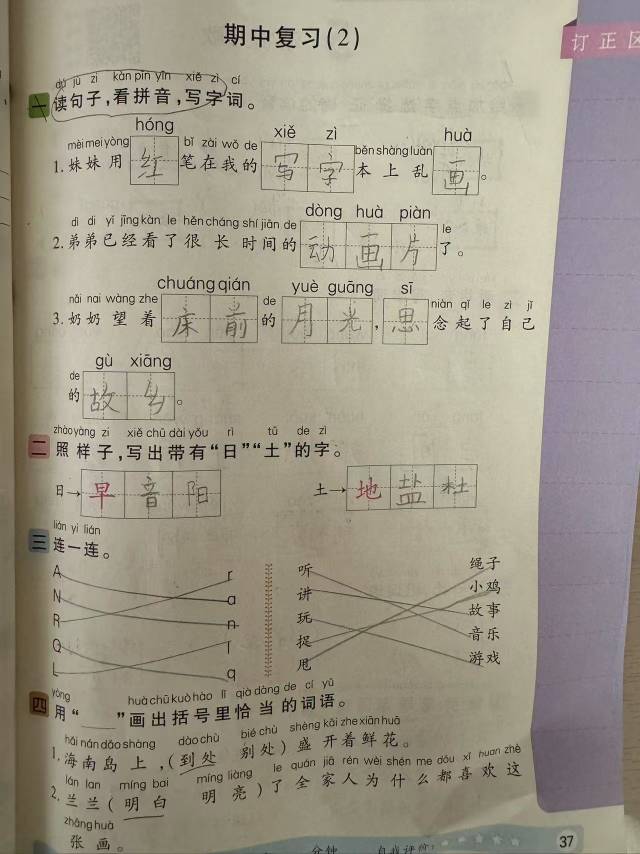 期中复习(2)
订正区
dú jù zi kàn pīn yīn xiě zì cí
一 读句子,看拼音,写字词。
hóng xiě zì huà
mèi mei yòng bǐ zài wǒ de běn shàng luàn
1.妹妹用红笔在我的写字本上乱画。
dòng huà piàn
dì di yǐ jīng kàn le hěn cháng shí jiān de le
2.弟弟已经看了很长时间的动画片了。
chuáng qián yuè guāng sī
nǎi nai wàng zhe de niàn qǐ le zì jǐ
3.奶奶望着床前的月光,思念起了自己
gù xiāng
de
的故乡。
zhào yàng zi xiě chū dài yǒu rì tǔ de zì
二 照样子,写出带有“日”“土”的字。
日→早 音 阳 土→地 盐 杜
lián yi lián
三 连一连。
A r 听 绳子
N a 讲 小鸡
R n 玩 故事
Q l 捉 音乐
L q 甩 游戏
yòng huà chū kuò hào lǐ qià dàng de cí yǔ
四 用“____”画出括号里恰当的词语。
hǎi nán dǎo shàng dào chù bié chù shèng kāi zhe xiān huā
1.海南岛上,(到处 别处)盛开着鲜花。
lán lan míng bai míng liàng le quán jiā rén wèi shén me dōu xǐ huan zhè
2.兰兰(明白 明亮)了全家人为什么都喜欢这
zhāng huà
张画。
分钟 自我评价:
37